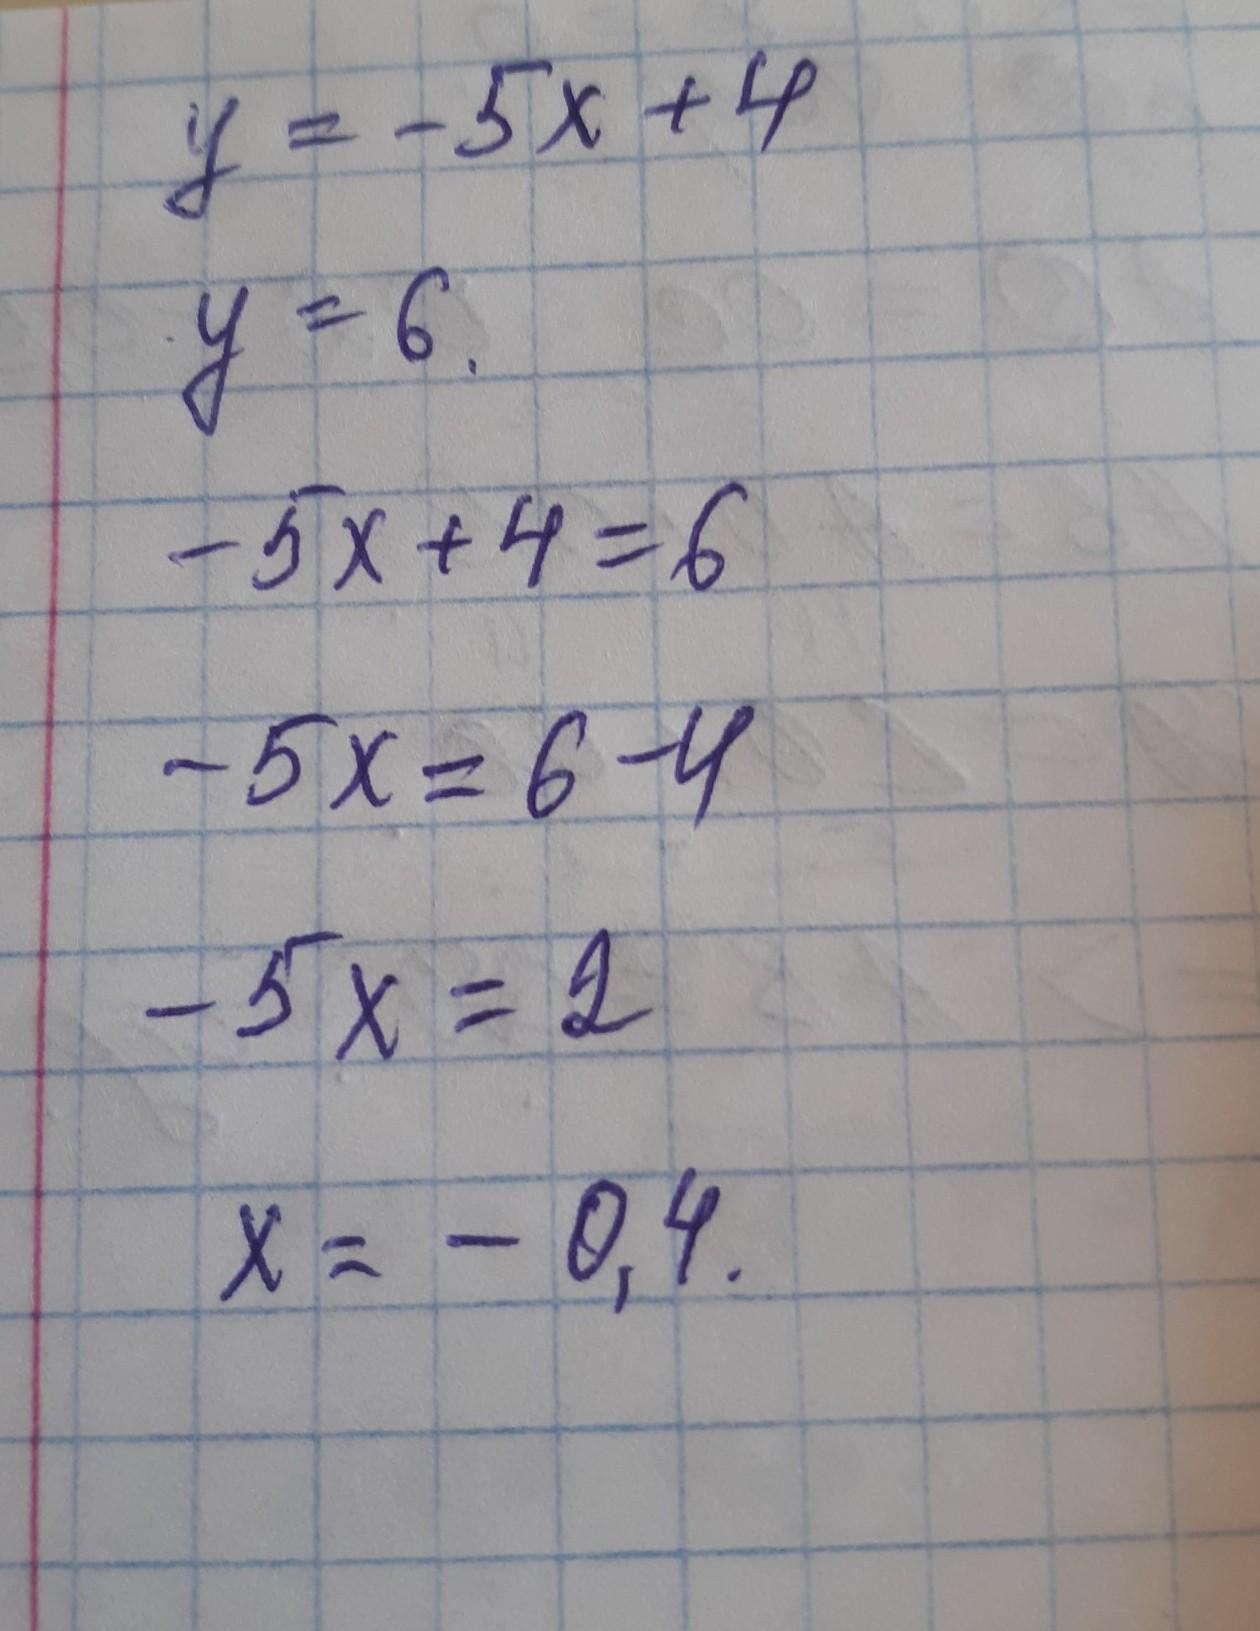 y = -5x + 4
y = 6.
-5x + 4 = 6
-5x = 6 - 4
-5x = 2
x = - 0,4.